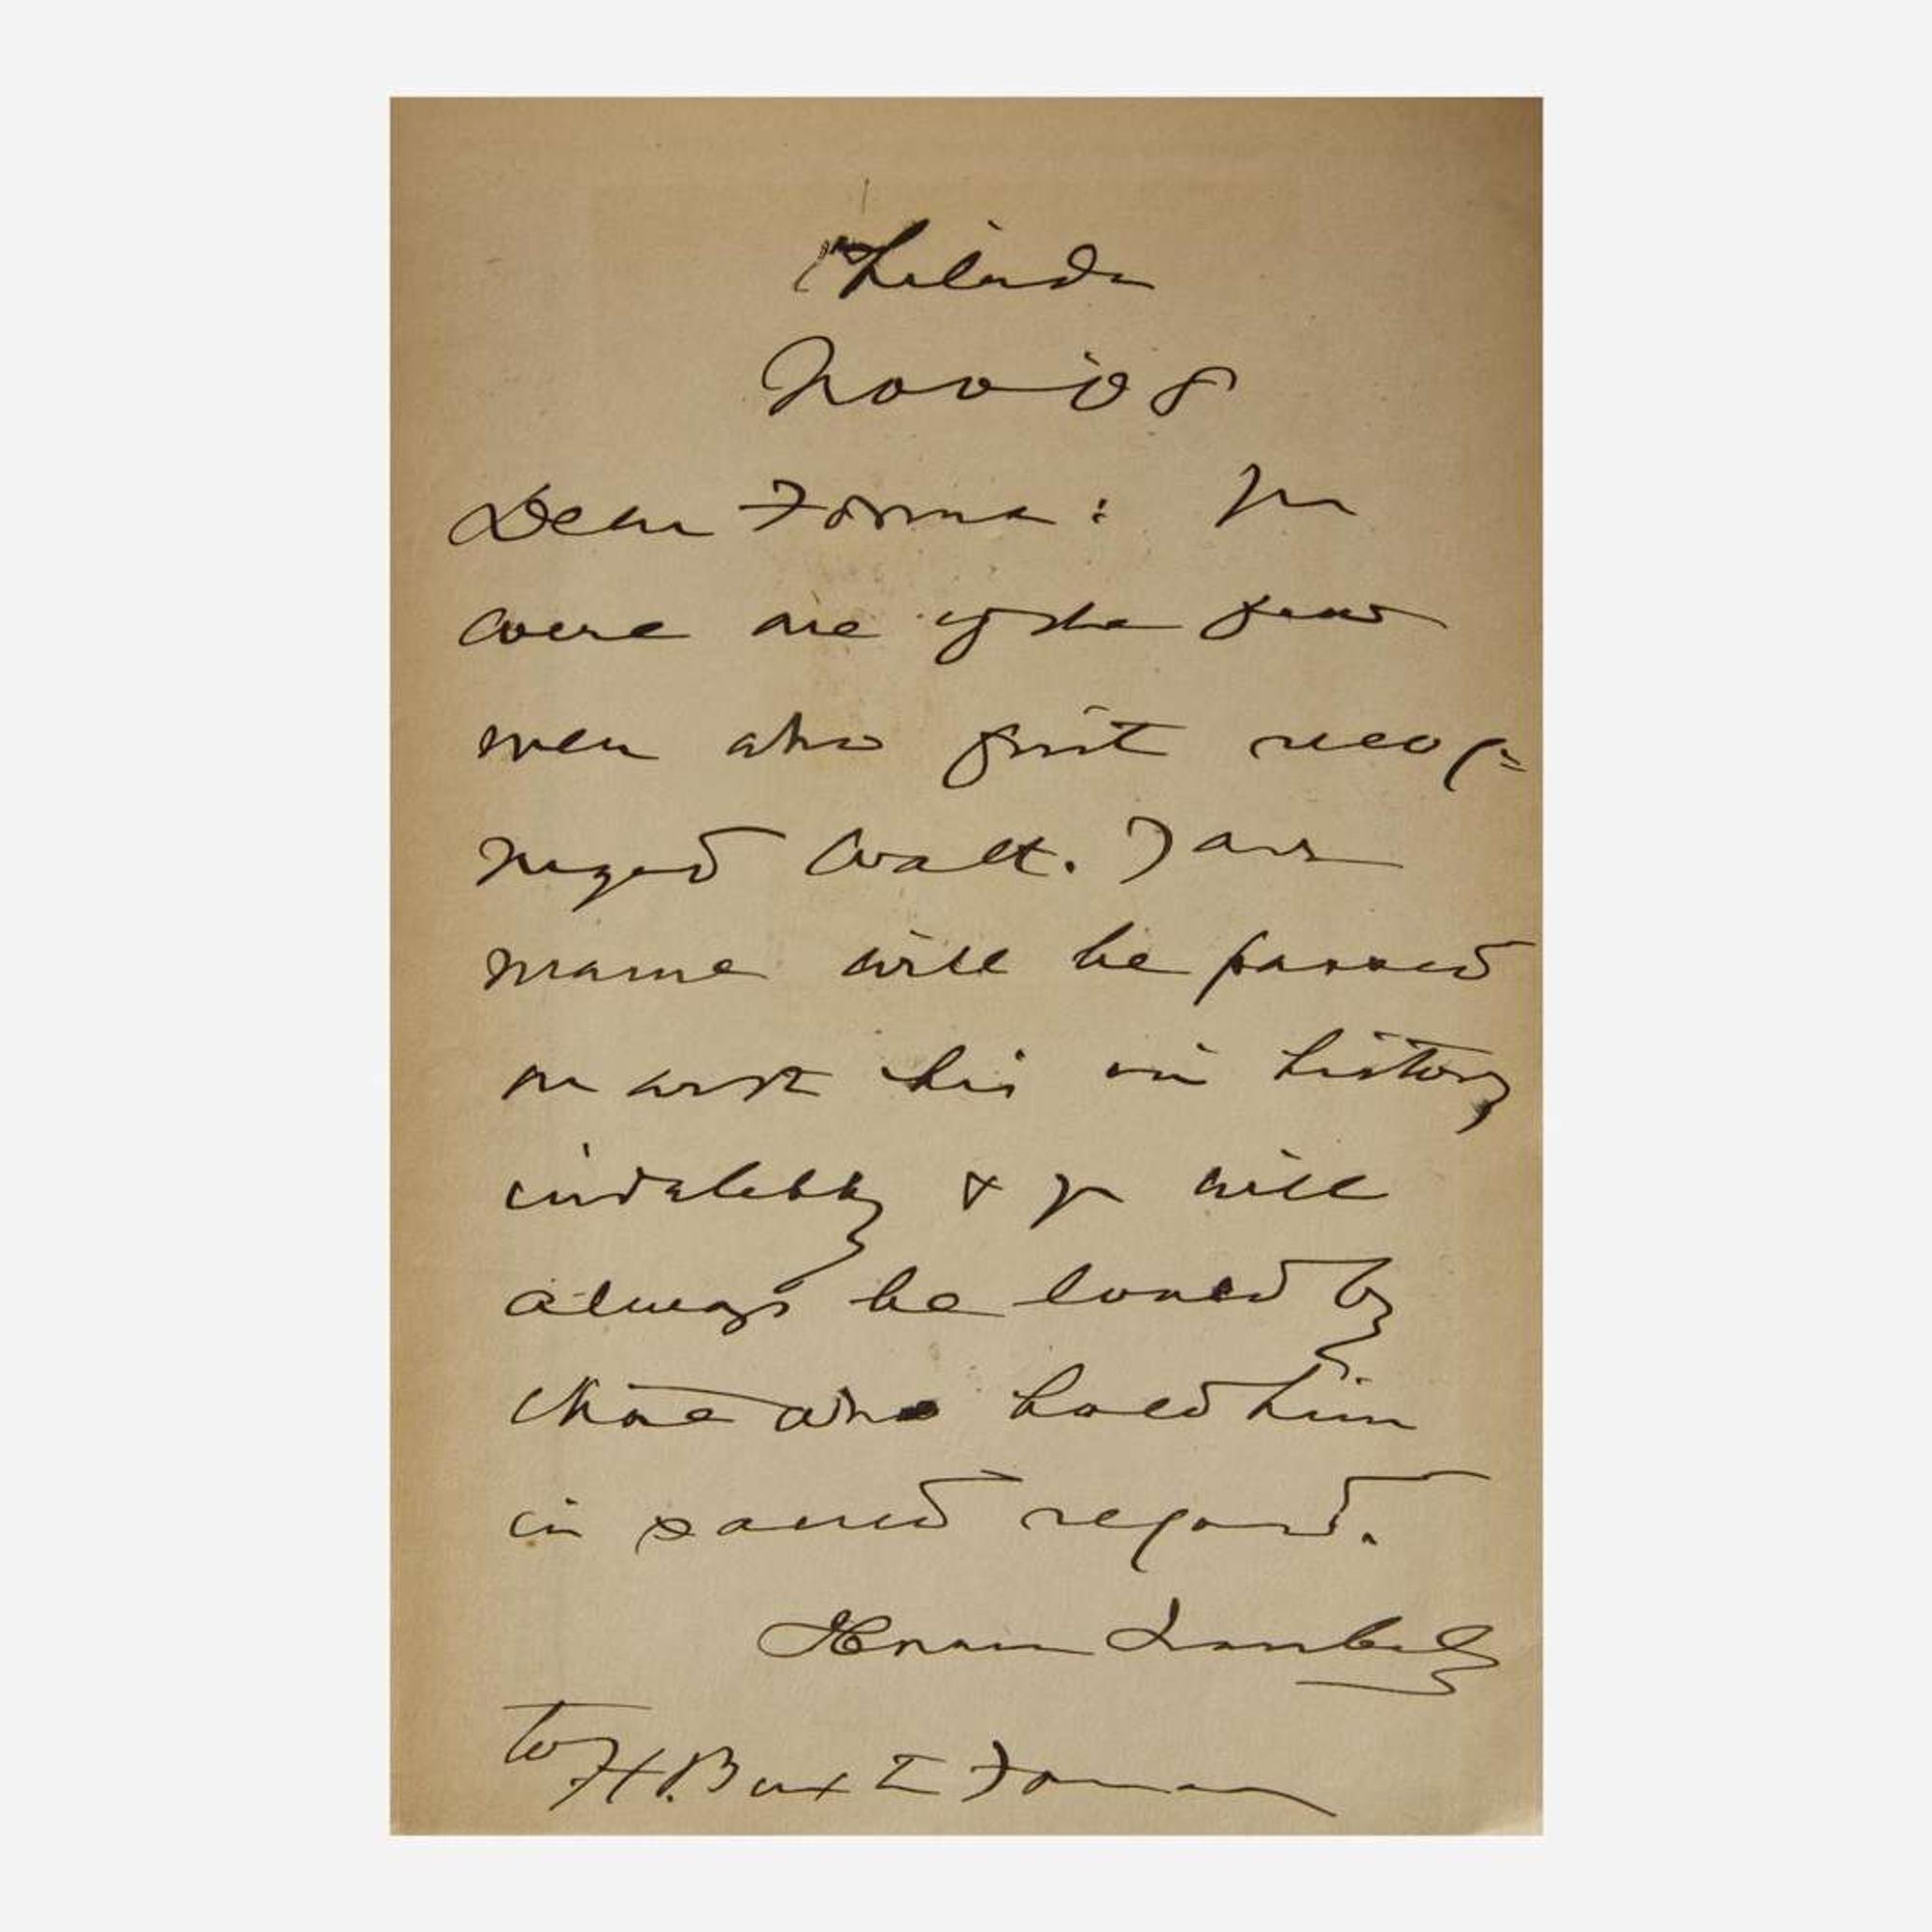 Philada
Nov '08
Dear Forman: Yr
were one of the few
men who first recog=
nized Walt. Yr
name will be passed
on with his in history
indelibly & yr will
always be loved by
those who hold him
in sacred regard.
Horace Traubel
to H. Buxton Forman